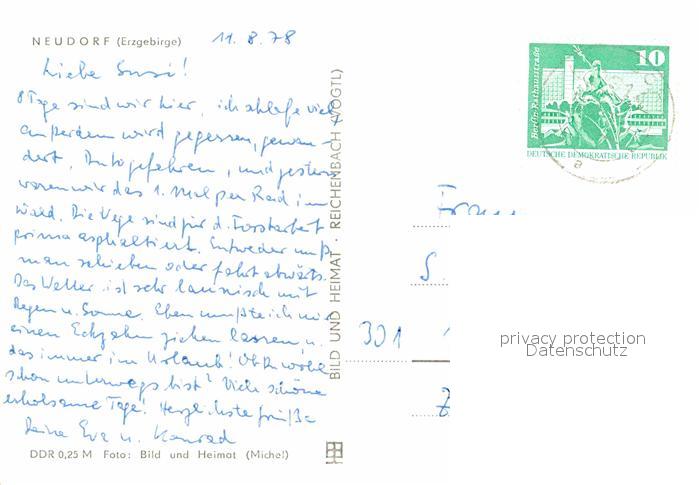 NEUDORF (Erzgebirge) 11. 8. 78
Liebe Susi!
8 Tage sind wir hier, ich schlafe viel,
außerdem wird gegessen, gewan-
dert, Auto gefahren, und gestern
waren wir das 1. Mal per Rad im
Wald. Die Wege sind für d. Forstarbeit
prima asphaltiert. Entweder muß
man schieben oder fährt abwärts.
Das Wetter ist sehr launisch mit
Regen u. Sonne. Eben mußte ich mir
einen Eckzahn ziehen lassen u.
das immer im Urlaub! Ob Du wohl
schon unterwegs bist? Viele schöne
erholsame Tage! Herzlichste Grüße
Deine Eva u. Konrad
DDR 0,25 M Foto: Bild und Heimat (Michel)
BILD UND HEIMAT · REICHENBACH (VOGTL)
10
Berlin, Rathausstraße
DEUTSCHE DEMOKRATISCHE REPUBLIK
a
S.
301
Z
privacy protection
Datenschutz